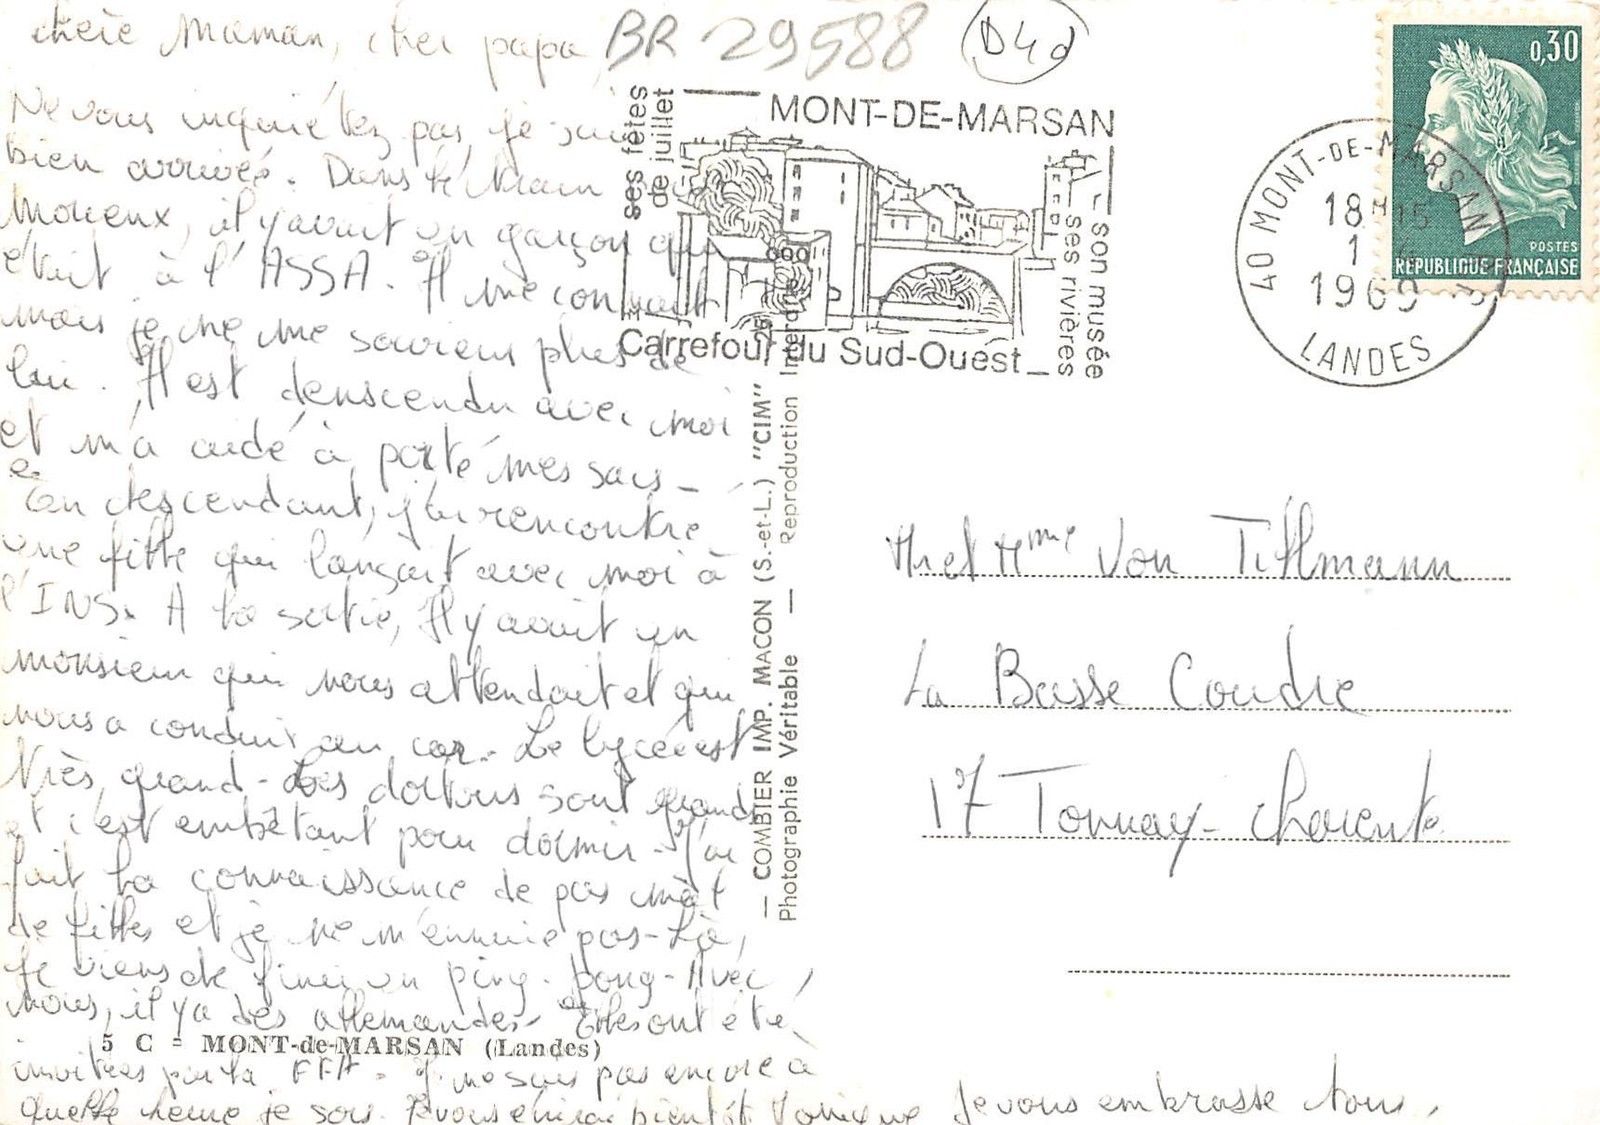 chère Maman, cher papa,
BR 29588
D4d
Ne vous inquiétez pas, je suis
bien arrivée. Dans le train
Morcenx, il y avait un garçon qui
était à l'ASSA. Il me connait
mais je ne me souviens plus de
lui. Il est denscendu avec moi
et m'a aidé à porté mes sacs -
En descendant, j'ai rencontré
une fille qui lançait avec moi à
l'INS. A la sortie, Il y avait un
monsieur qui nous attendait et qui
nous a conduit au car. Le lycée est
très grand - Les dortoirs sont grands
et c'est embêtant pour dormir - J'ai
fait la connaissance de pas mal
de filles et je ne m'ennuie pas - Là,
je viens de finir un ping-pong - Avec
nous, il y a des allemandes - Elles ont été
invitées par la FFA - Je ne sais pas encore à
quelle heure je sors. Je vous écrirai bientôt Je vous embrasse tous.
5 C - MONT-de-MARSAN (Landes)
ses fêtes
de juillet
MONT-DE-MARSAN
son musée
ses rivières
Carrefour du Sud-Ouest
— COMBIER IMP. MACON (S.-et-L.) "CIM" —
Photographie Véritable — Reproduction Interdite
40 MONT-DE-MARSAN
18H15
1
1969
LANDES
0,30
POSTES
REPUBLIQUE FRANÇAISE
Mr et Mme Von Tillmann
La Basse Coudre
17 Tonnay-Charente